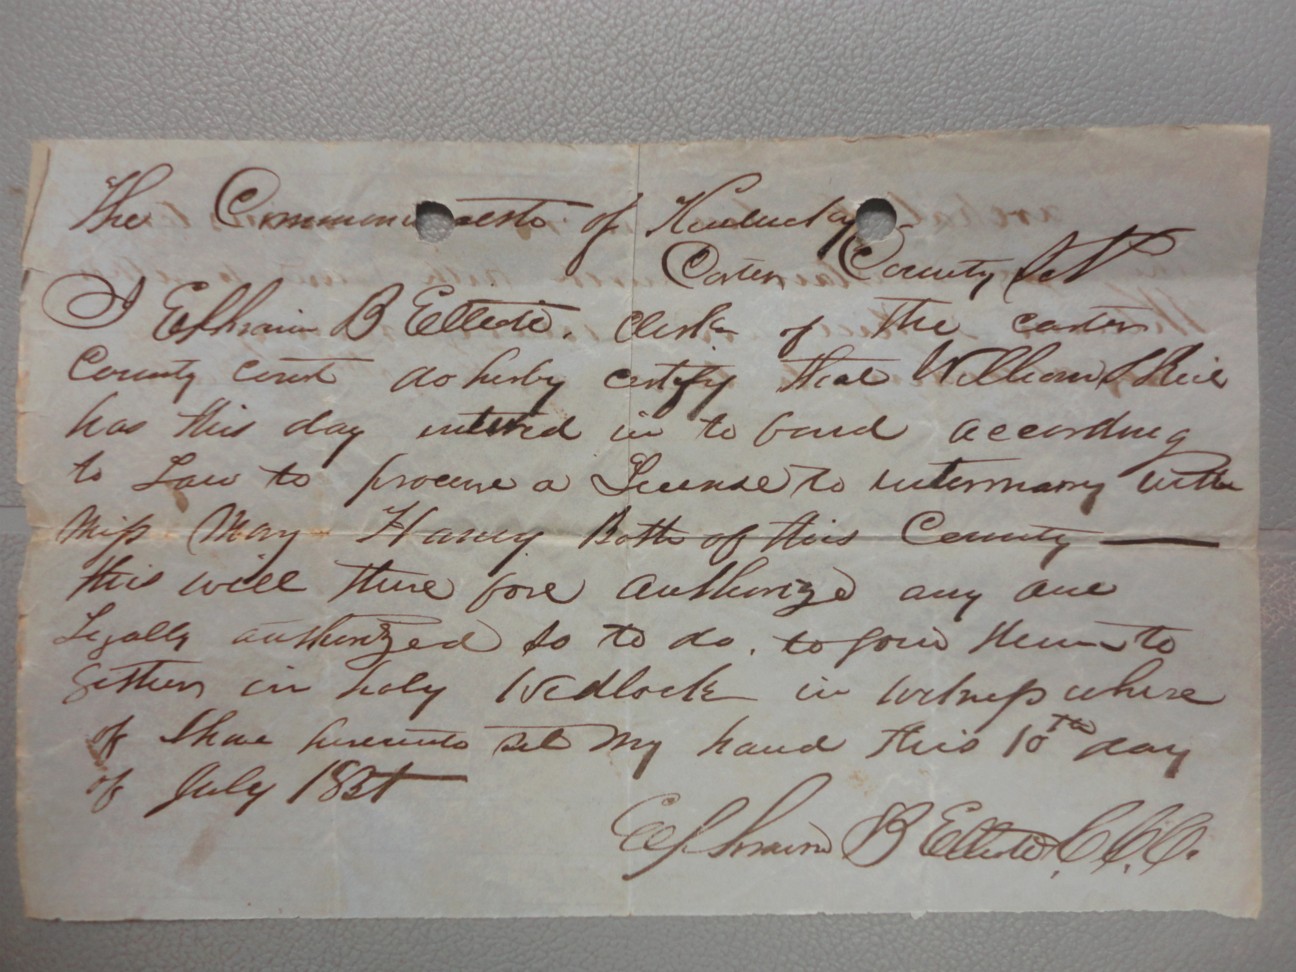 The Commonwealth of Kentucky
Carter County Sct
I Ephraim B Elliott. Clerk of the carter
County court do herby certify that William
has this day entered in to bond according
to Law to procure a License to intermarry with
Miss Mary Haney Both of this County
this will there fore authorize any one
Legally authorized so to do. to join them to
gether in holy Wedlock in witness where
of I have hereunto set my hand this 10th day
of July
Ephraim B Elliott C.C.C.